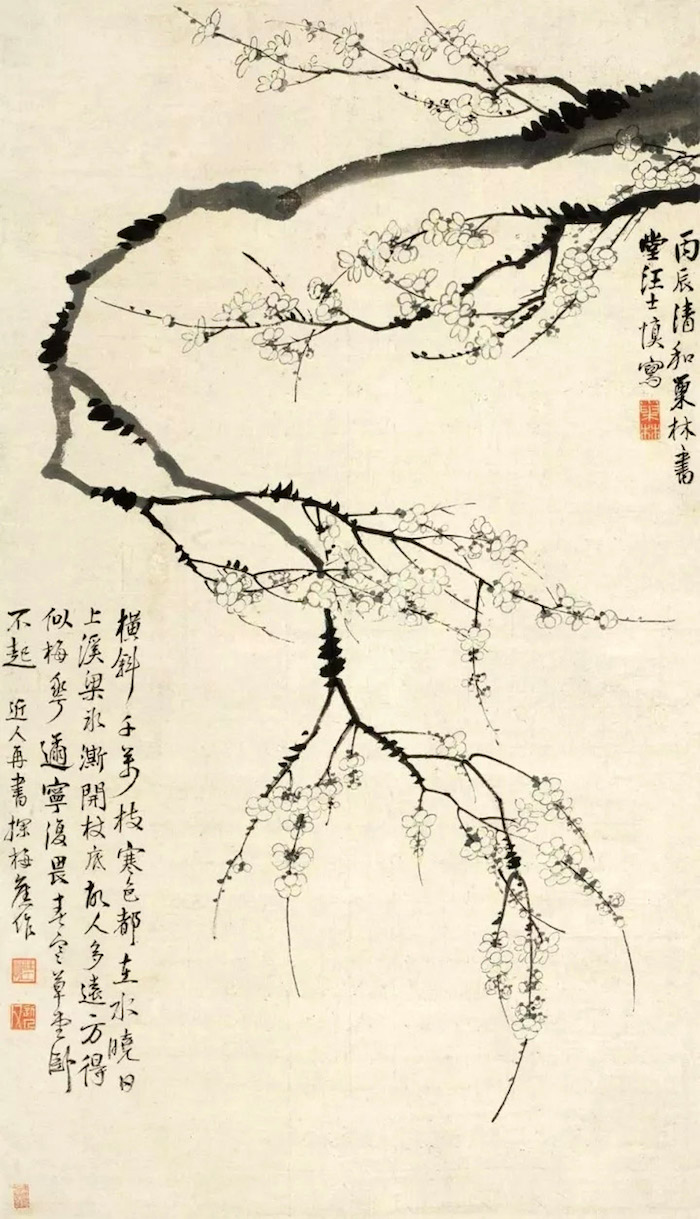 丙辰清和巢林書
堂汪士慎寫
巢林
橫斜千萬枝寒色都在水曉日
上溪梁氷澌開杖底故人多遠方得
似梅花邇寧復畏春寒草堂卧
不起 近人再書探梅舊作